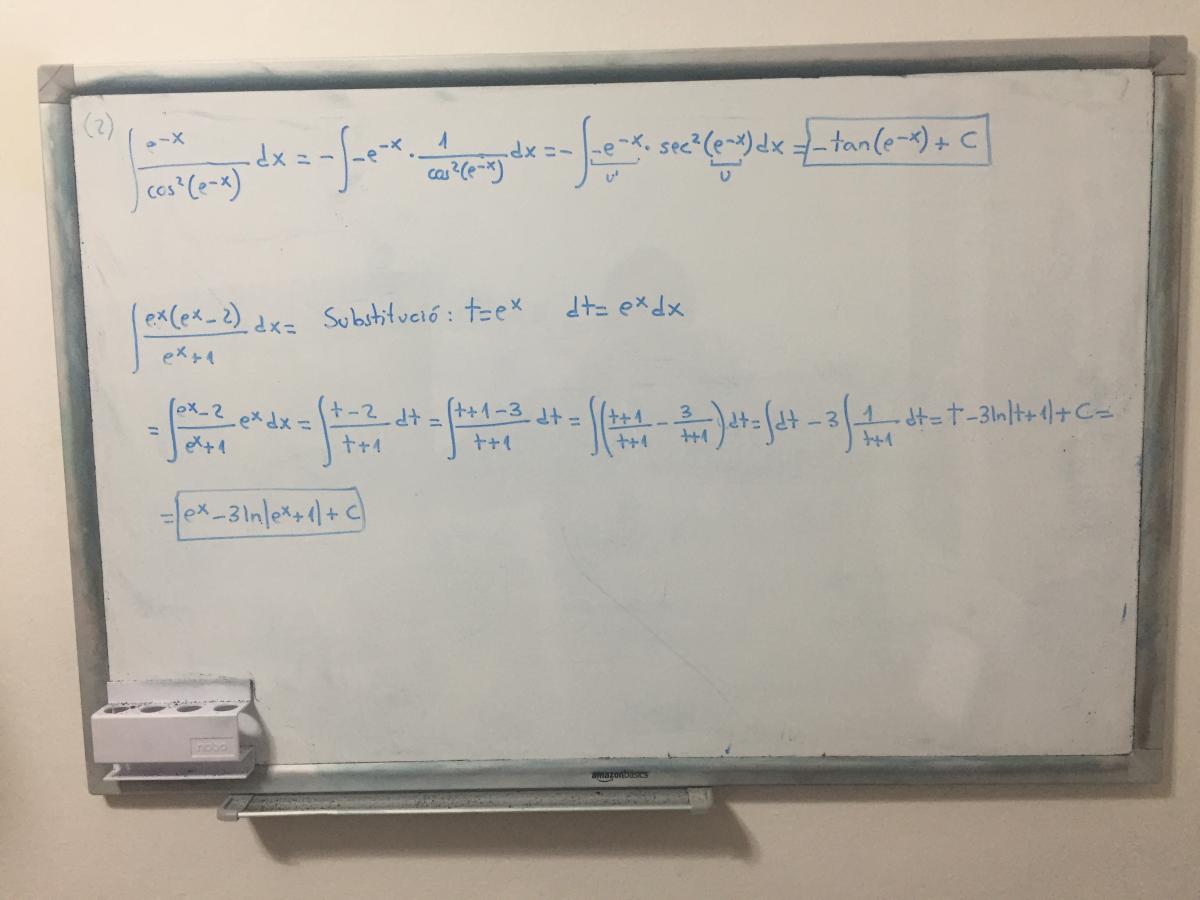 (2)
∫ e^-x / cos²(e^-x) dx = -∫ -e^-x · 1 / cos²(e^-x) dx = -∫ -e^-x · sec²(e^-x) dx = -tan(e^-x) + C
u' u
∫ e^x(e^x - 2) / e^x + 1 dx = Substitució: t = e^x dt = e^x dx
= ∫ e^x - 2 / e^x + 1 e^x dx = ∫ t - 2 / t + 1 dt = ∫ t + 1 - 3 / t + 1 dt = ∫ (t + 1 / t + 1 - 3 / t + 1) dt = ∫ dt - 3 ∫ 1 / t + 1 dt = t - 3 ln|t + 1| + C =
= e^x - 3 ln|e^x + 1| + C
nobo
amazonbasics